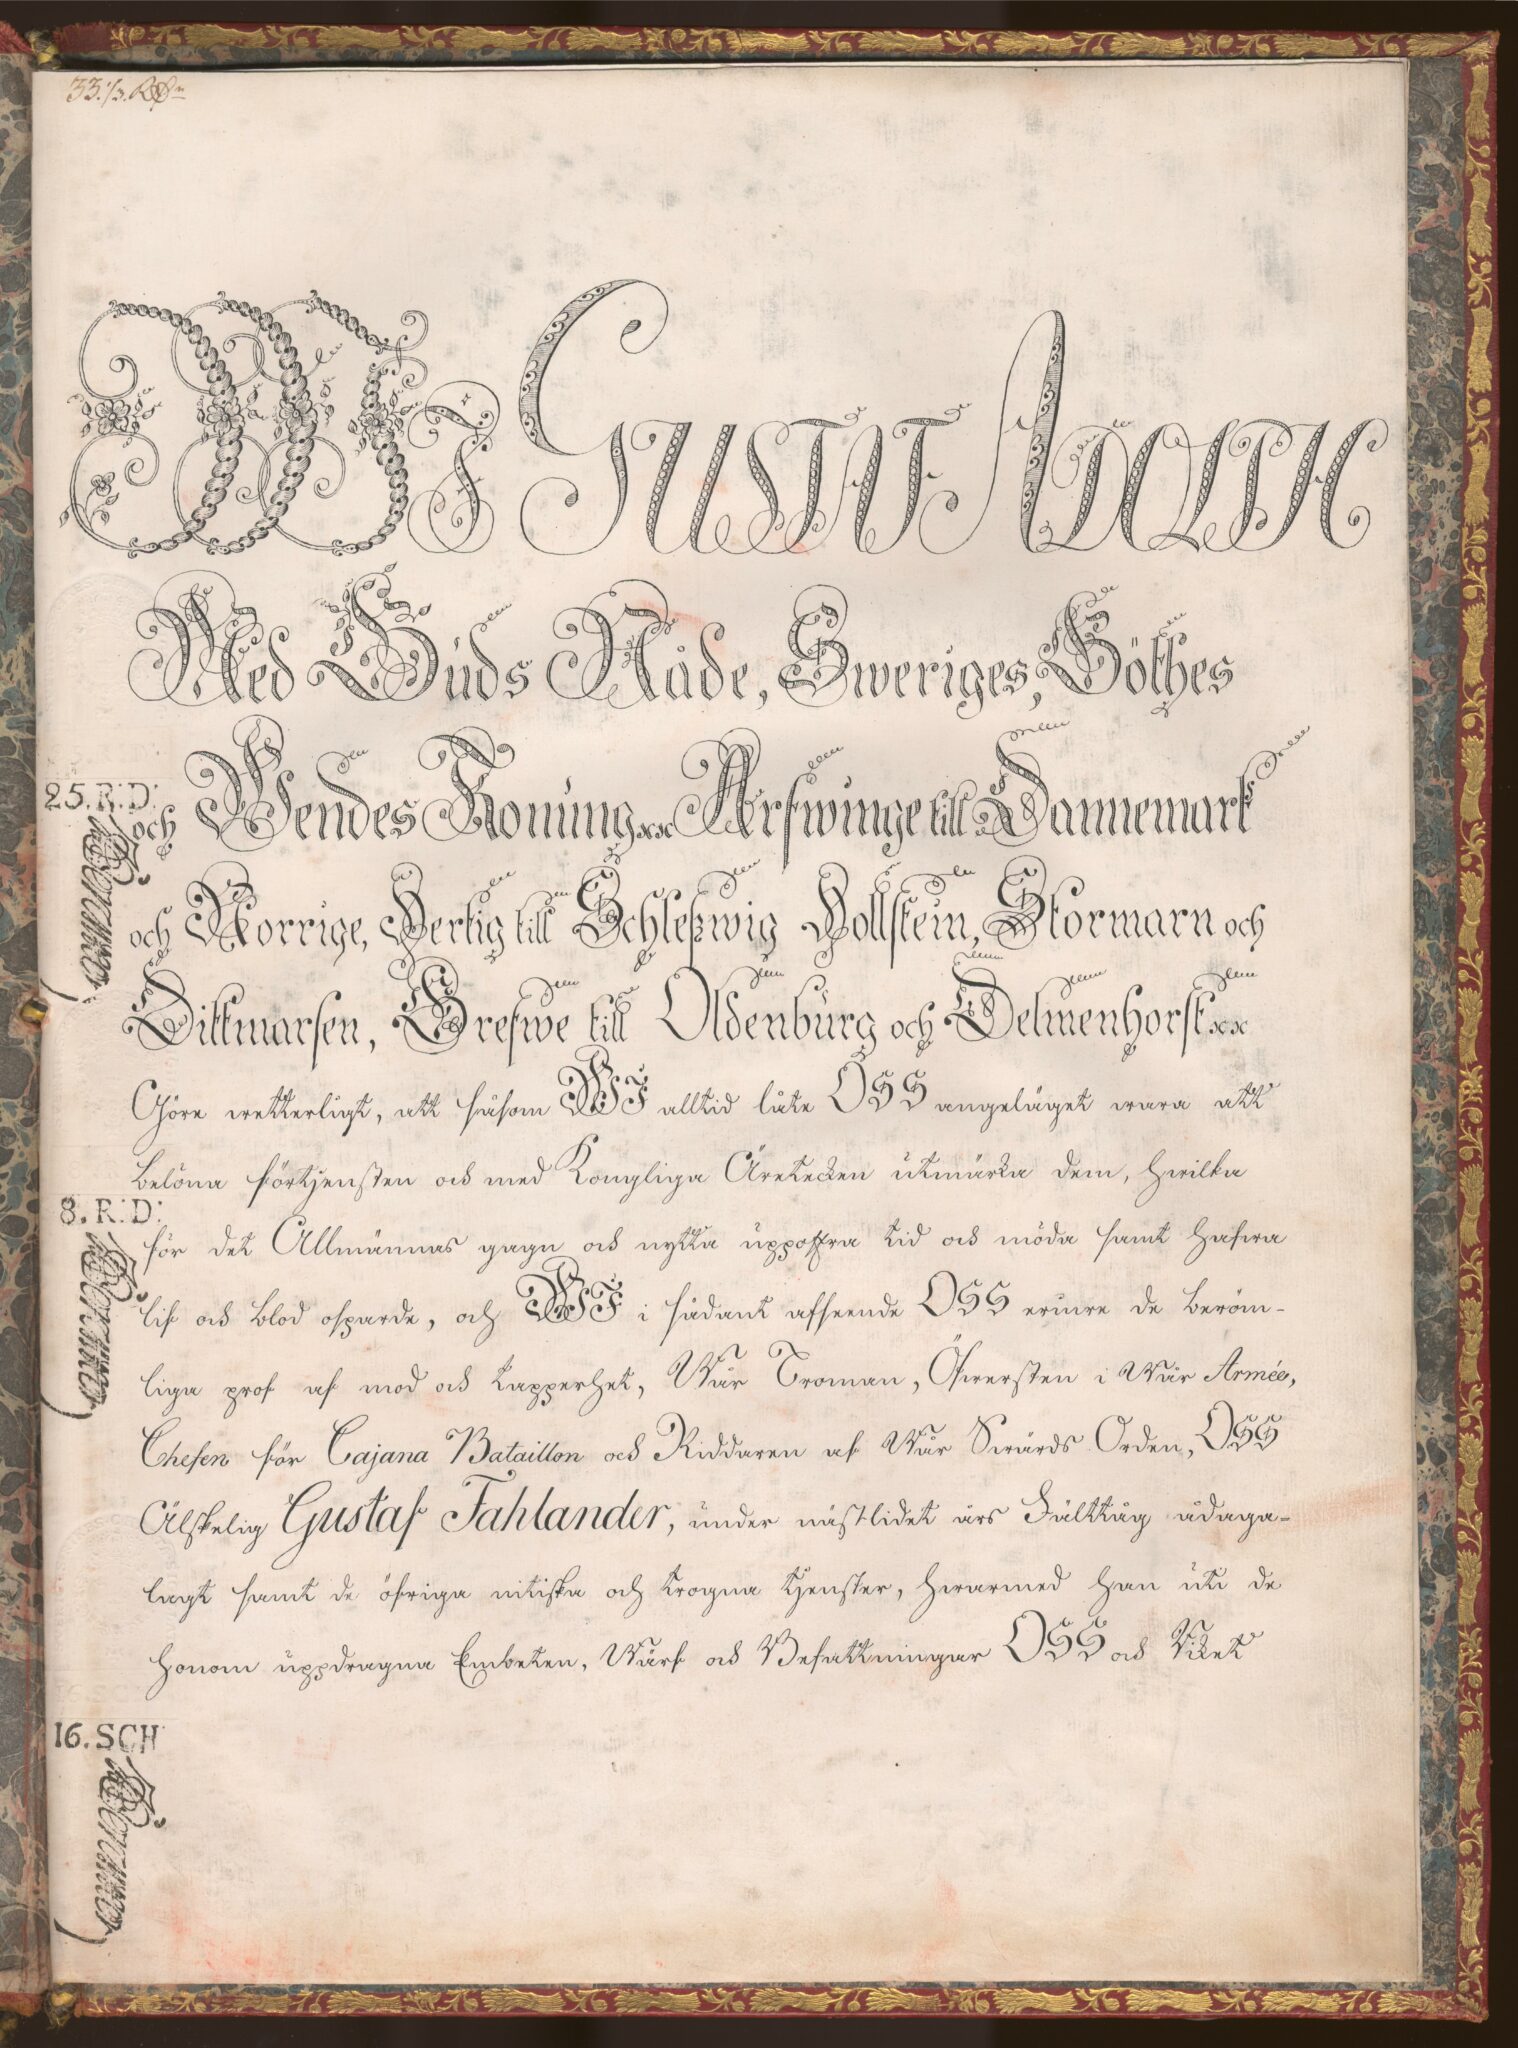 33.1/3. RDr
WI GUSTAF ADOLPH
Med Guds Nåde, Sweriges, Göthes
25. R:D:
och Wendes Konung xx Arfwinge till Dannemark
och Norrige, Hertig till Schleßwig Hollstein, Stormarn och
Dittmarsen, Grefwe till Oldenburg och Delmenhorst xx
Göre wetterligt, att såsom WI alltid låte OSS angeläget wara att
belöna förtjensten och med Kongliga Äretecken utmärka dem, hwilka
8. R:D:
för det Allmännas gagn och nytta uppoffra tid och möda samt hafwa
lif och blod osparde, och WI i sådant afseende OSS erinre de beröm-
liga prof af mod och tapperhet, Wår Troman, Öfwersten i Wår Armée,
Chefen för Cajana Bataillon och Riddaren af Wår Swärds Orden, OSS
Älskelig Gustaf Fahlander, under nästlidet års Fälttåg ådaga-
lagt samt de öfriga nitiska och trogna tjenster, hwarmed han uti de
honom uppdragna Embeten, Wärf och Befattningar OSS och Riket
16. SCH